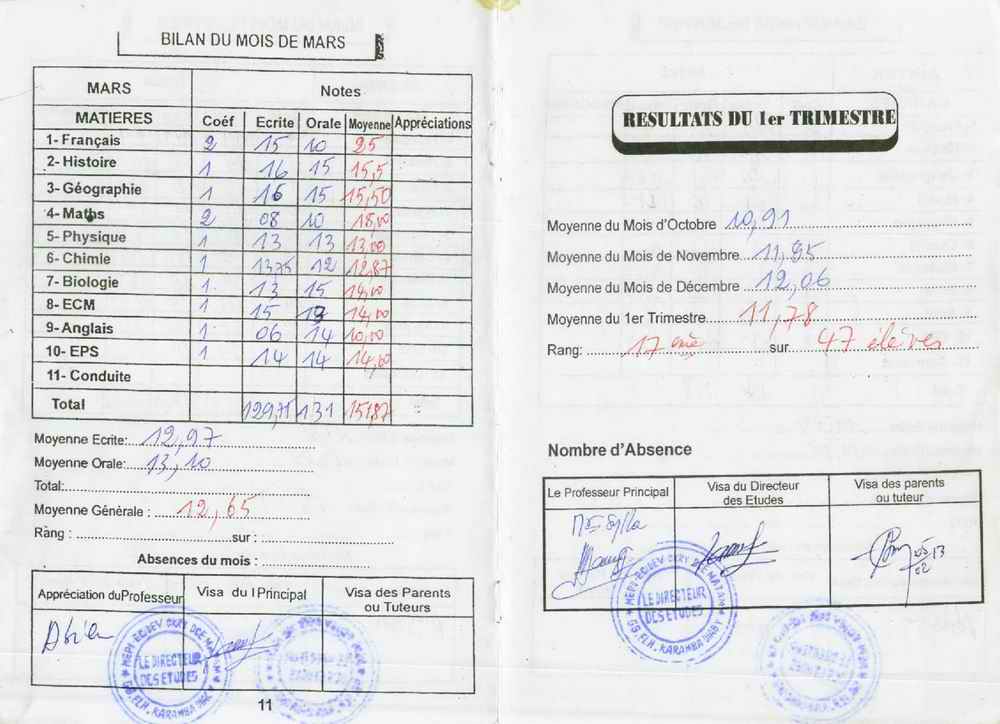 BILAN DU MOIS DE MARS
MARS Notes
MATIERES Coéf Ecrite Orale Moyenne Appréciations
1- Français 2 15 10 25
2- Histoire 1 16 15 15,5
3- Géographie 1 16 15 15,50
4- Maths 2 08 10 18,00
5- Physique 1 13 13 13,00
6- Chimie 1 13,75 12 12,87
7- Biologie 1 13 15 14,00
8- ECM 1 15 13 14,00
9- Anglais 1 06 14 10,00
10- EPS 1 14 14 14,00
11- Conduite
Total 129,75 131 151,87
Moyenne Ecrite: 12,97
Moyenne Orale: 13,10
Total:
Moyenne Générale : 12,65
Rang : sur :
Absences du mois :
Appréciation du Professeur Visa du l Principal Visa des Parents ou Tuteurs
LE DIRECTEUR
DES ETUDES
11
RESULTATS DU 1er TRIMESTRE
Moyenne du Mois d'Octobre 10,91
Moyenne du Mois de Novembre 11,95
Moyenne du Mois de Décembre 12,06
Moyenne du 1er Trimestre 11,78
Rang: 17 ème sur 47 élèves
Nombre d'Absence
Le Professeur Principal Visa du Directeur des Etudes Visa des parents ou tuteur
LE DIRECTEUR
DES ETUDES